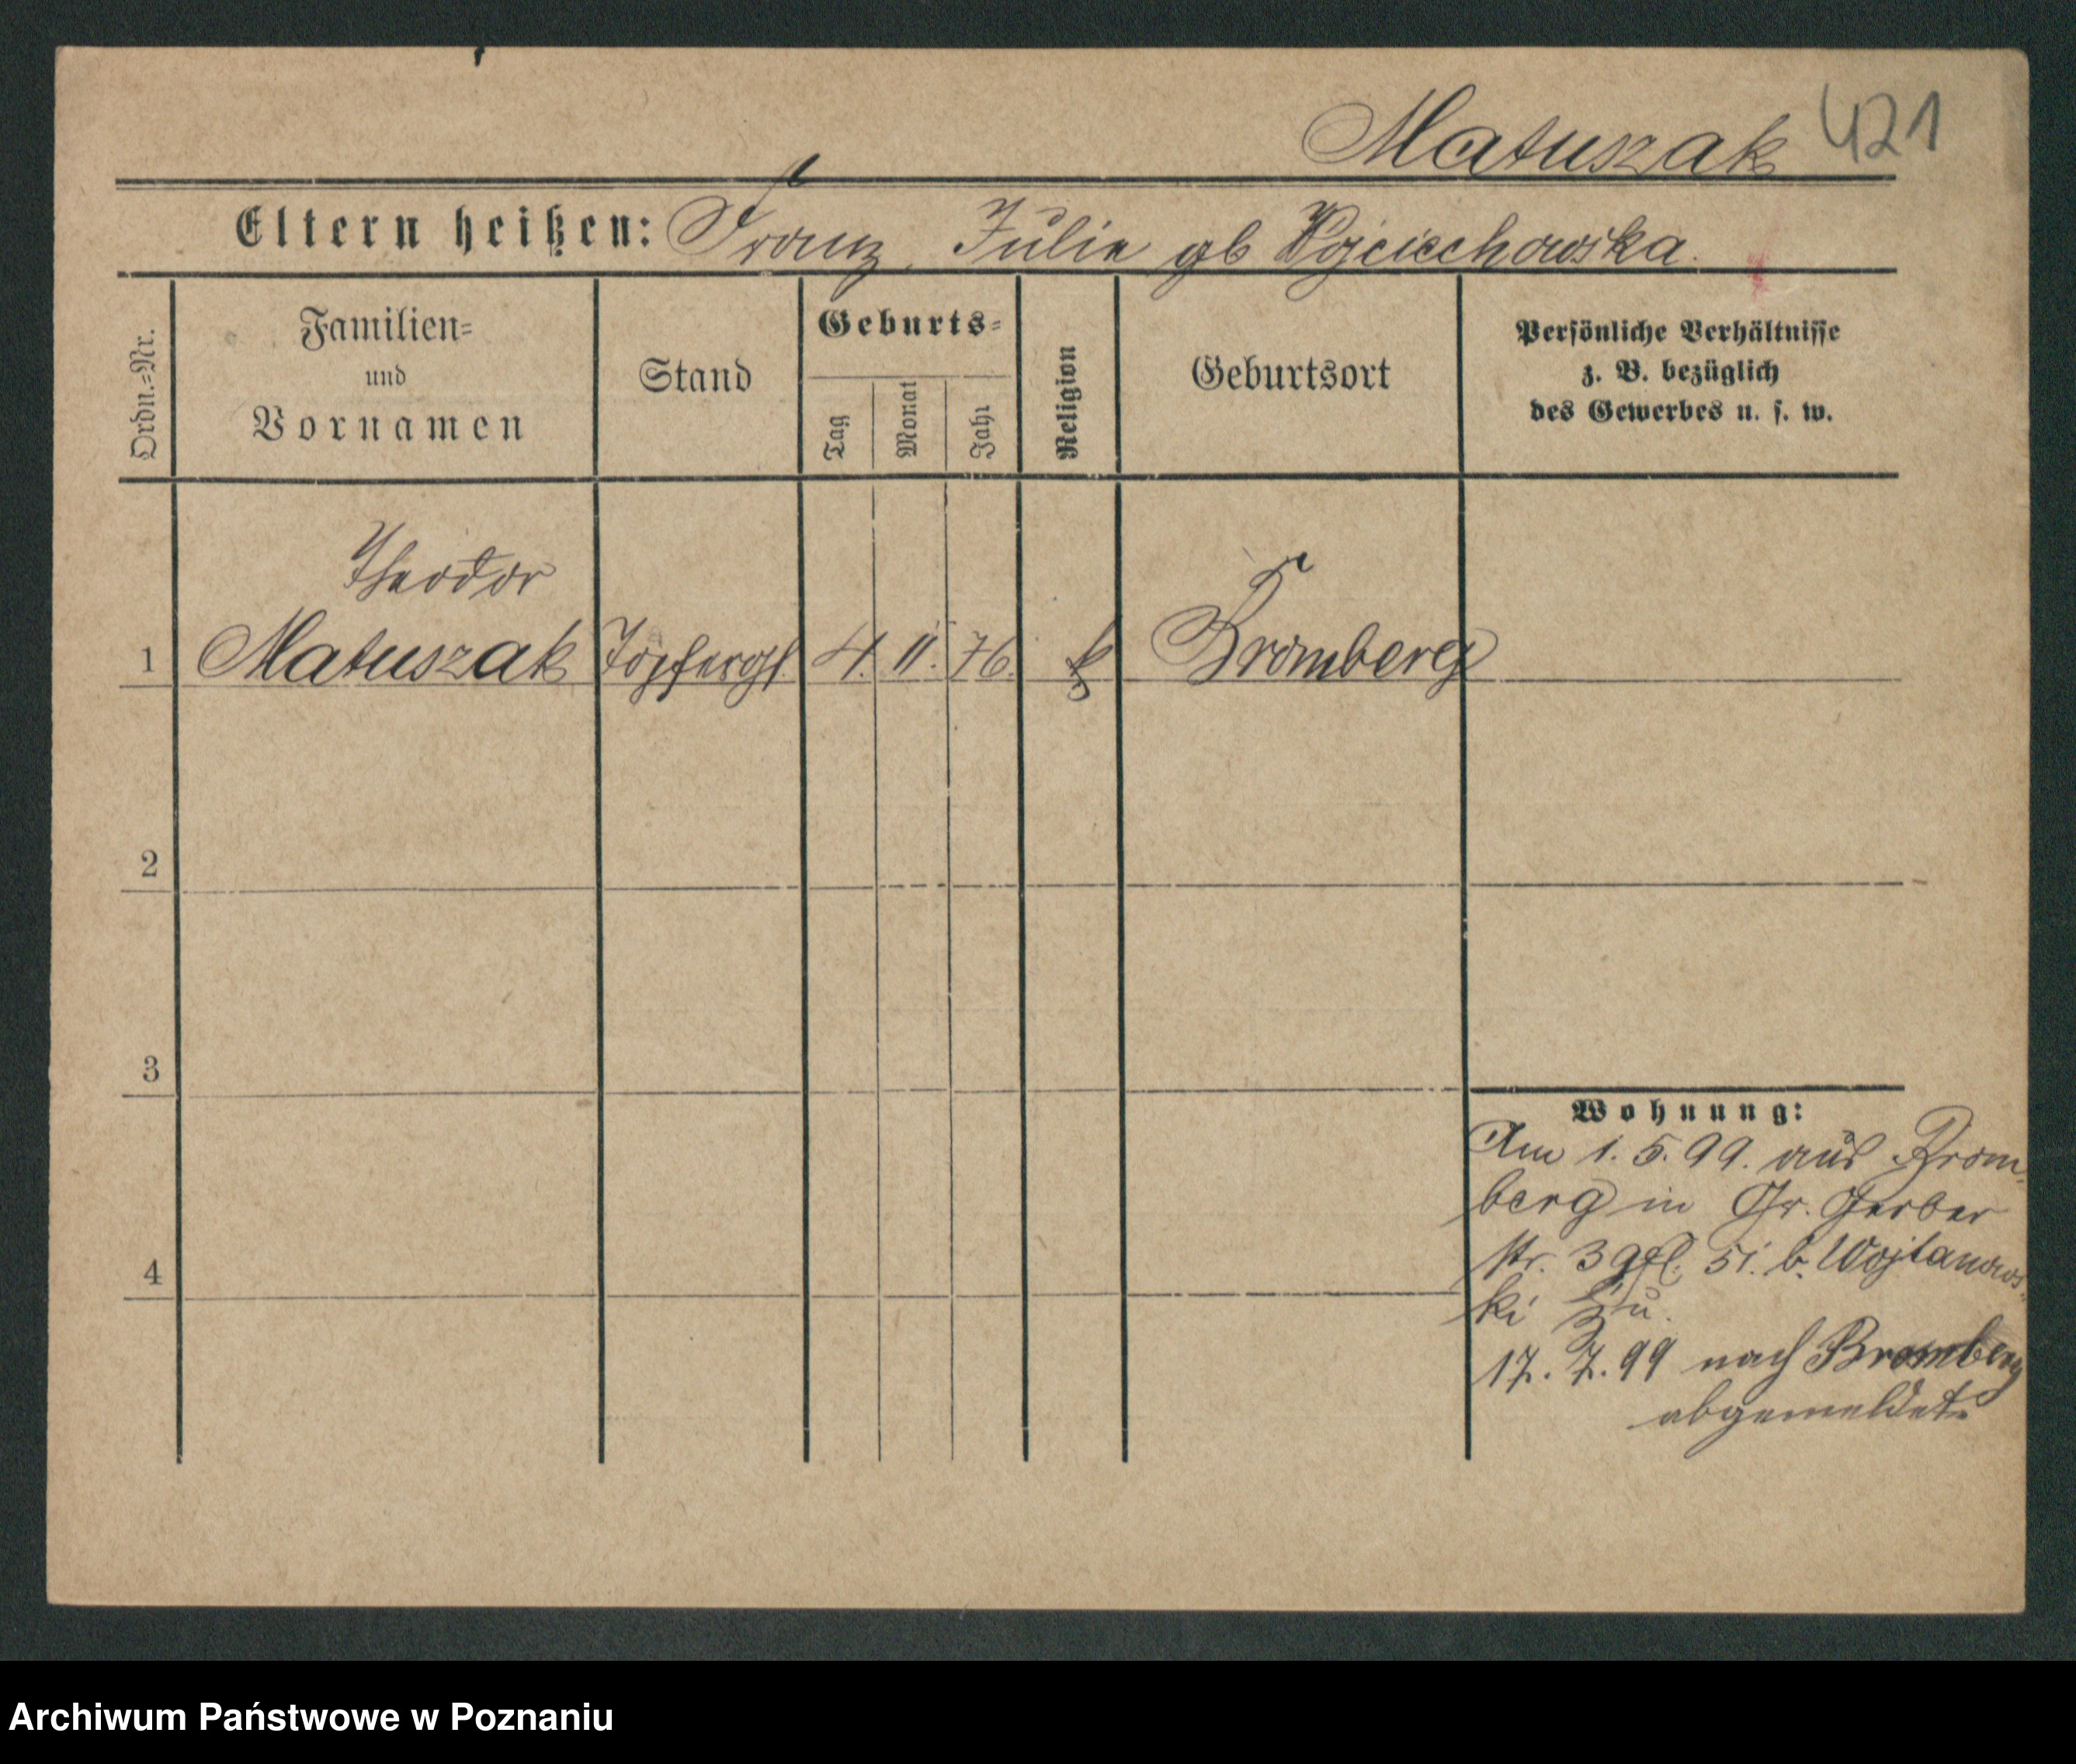 Matuszak 421
Eltern heißen: Franz, Julie gb Wojciechowska.
Ordn.=Nr.
Familien=
und
Vornamen
Stand
Geburts=
Tag
Monat
Jahr
Religion
Geburtsort
Persönliche Verhältnisse
z. B. bezüglich
des Gewerbes u. s. w.
Theodor
1 Matuszak Töpfergs. 4. 11. 76. k Bromberg
2
3
4
Wohnung:
Am 1. 5. 99. aus Brom-
berg in Gr. Gerber
str. 3 b. Wojtanows-
ki zu.
17. 7. 99 nach Bromberg
abgemeldet.
Archiwum Państwowe w Poznaniu